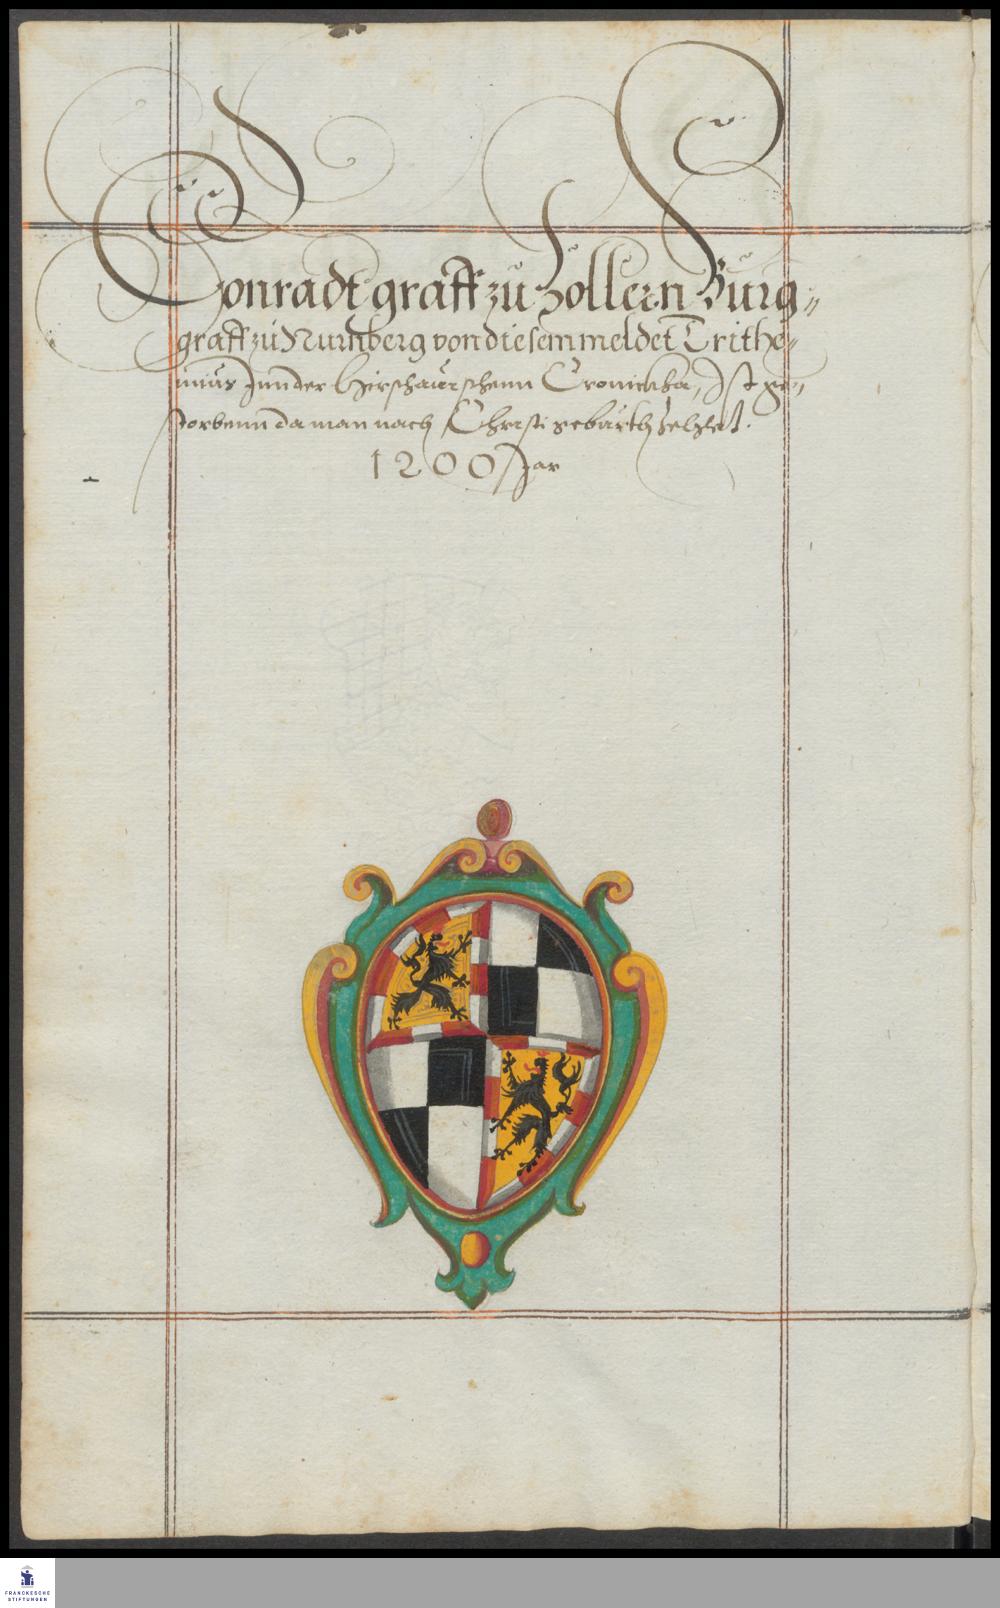 Conradt graff zu Zollern Burg=
graff zu Nurmberg von diesem meldet Trithe=
mius Jnn der Hirschaurschenn Cronickha, Jst ge=
storbenn da man nach Christi geburth zelhet.
1200 Jar
FRANCKESCHE
STIFTUNGEN